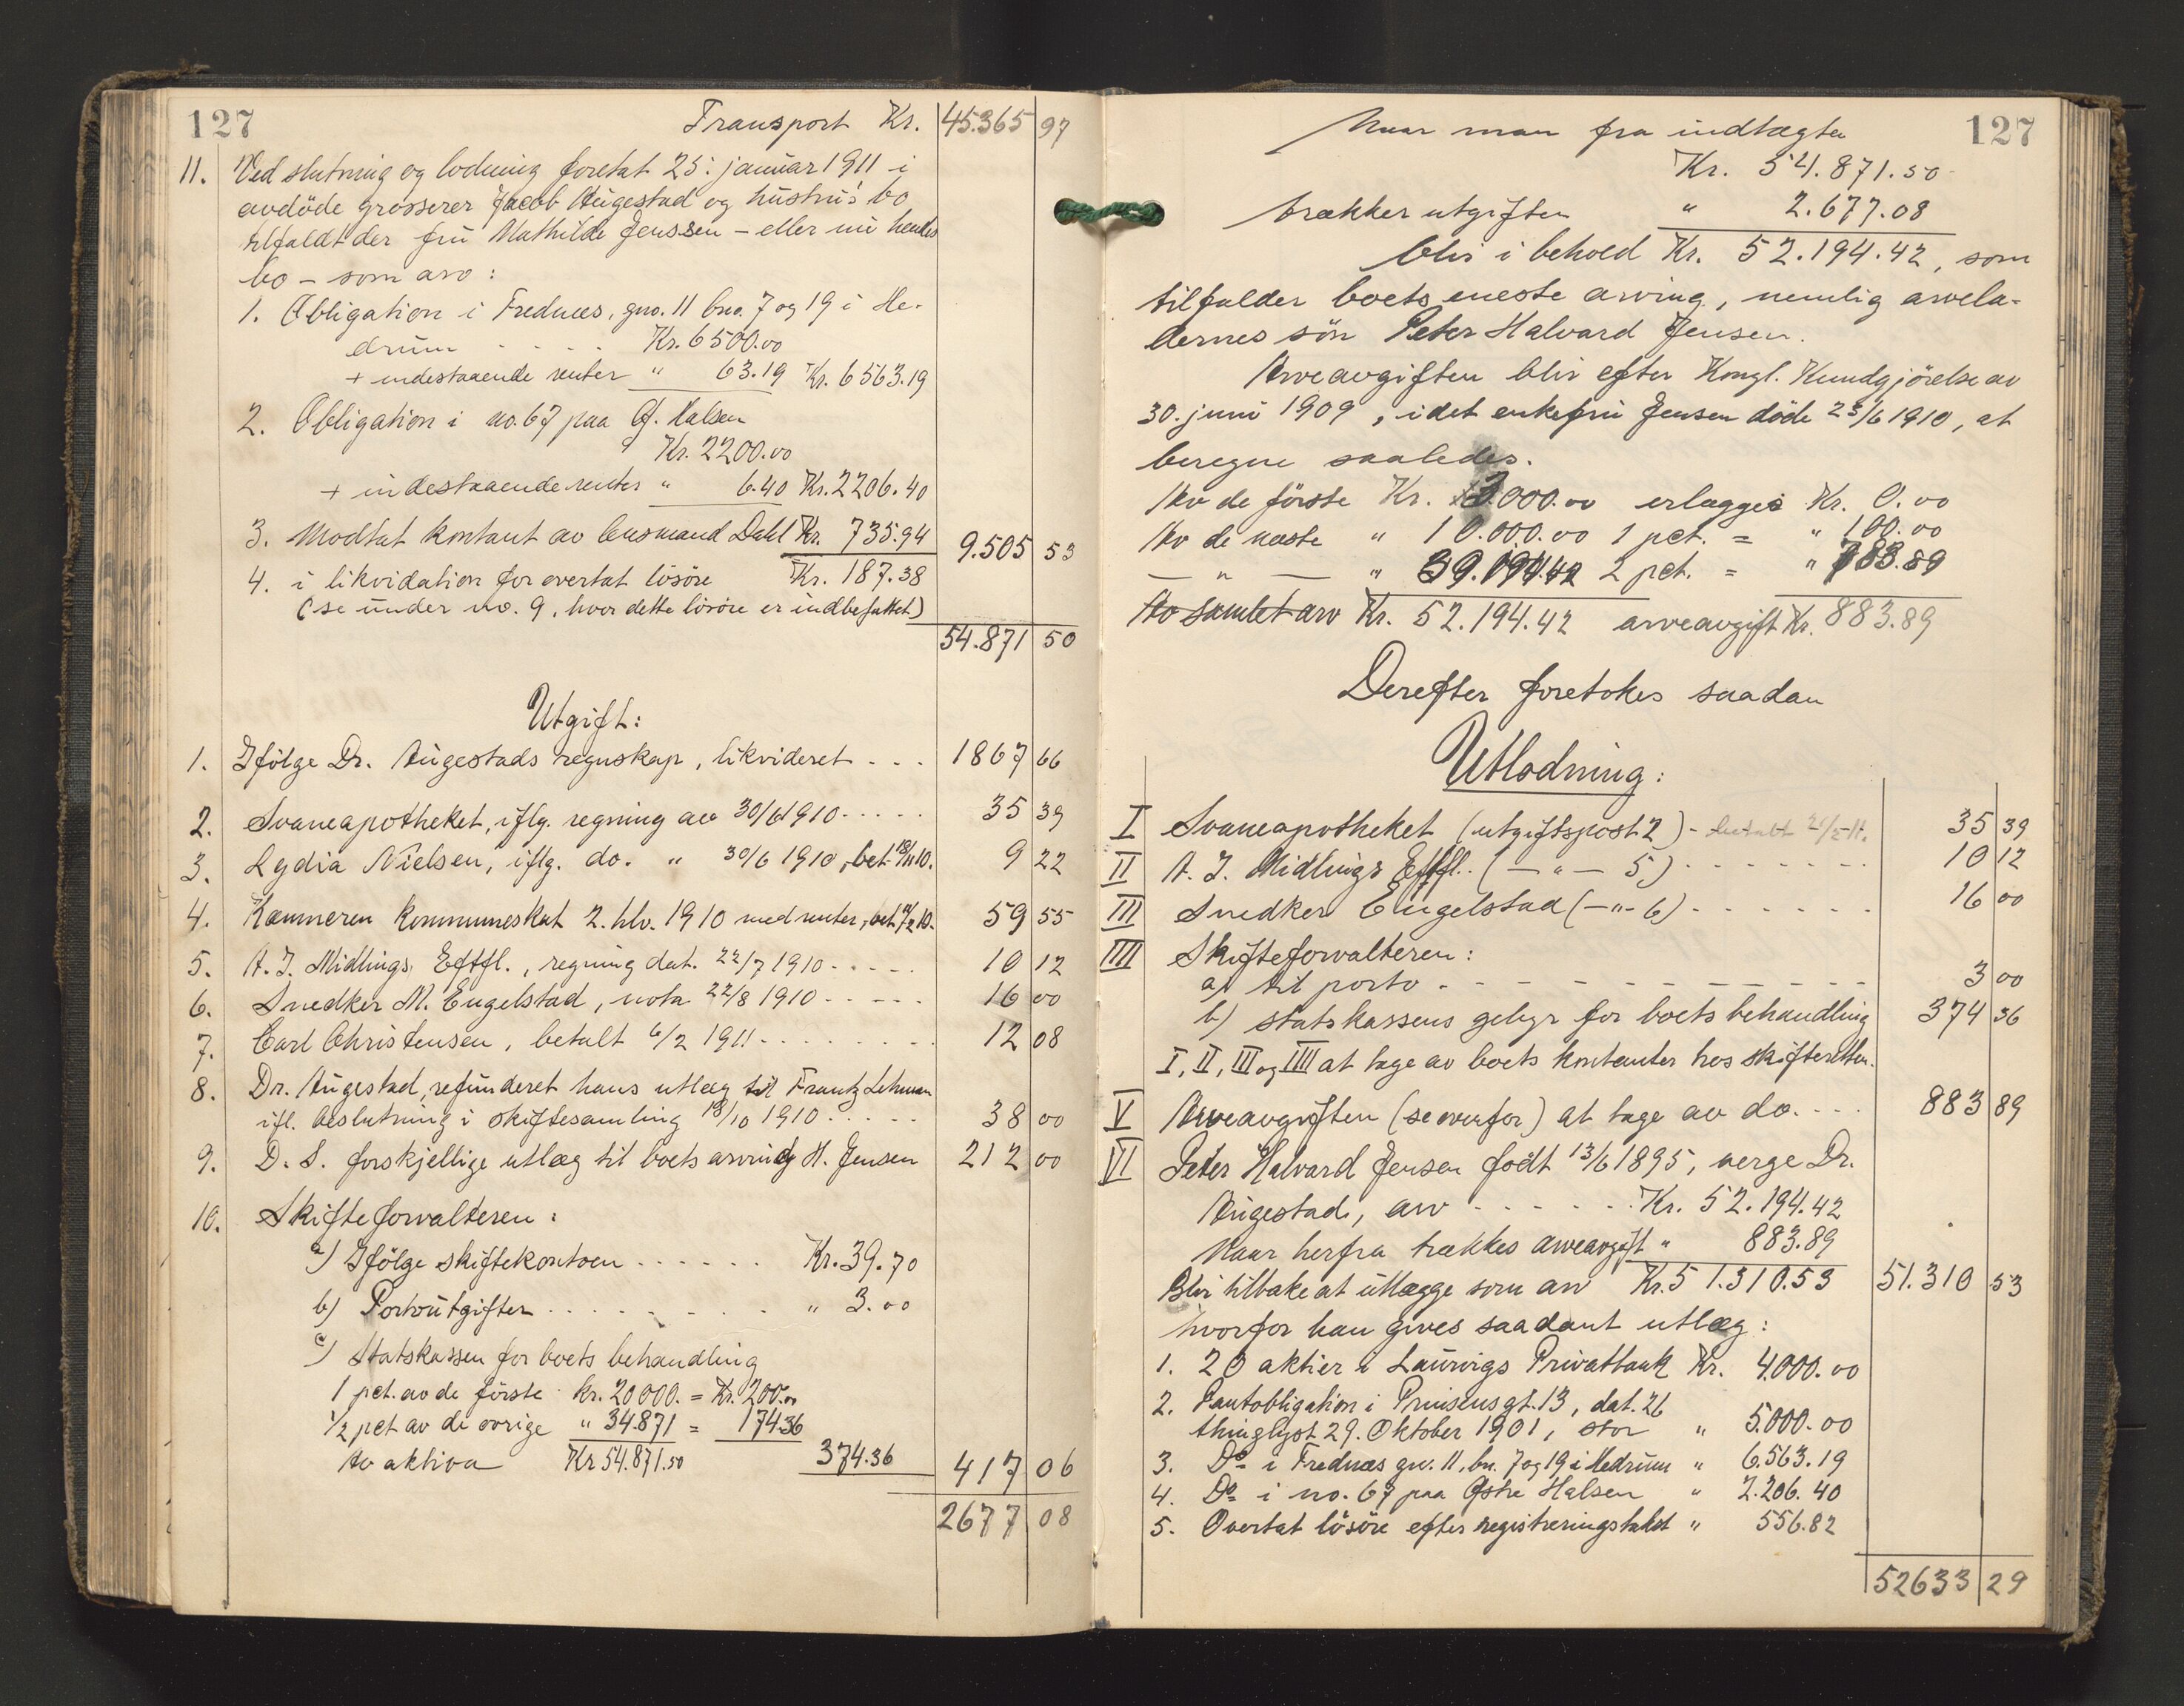 127
Transport Kr. 45.365 97
11. Ved slutning og lodning foretat 25: januar 1911 i
avdöde grosserer Jacob Augestad og hustrus bo
tilfaldt der fru Mathilde Jenssen - eller nu hendes
bo - som arv:
1. Obligation i Frednæs, gno. 11 bno. 7 og 19 i He-
drum - - - - Kr. 6500.00
+ indestaaende renter " 63.19 Kr. 6563.19
2. Obligation i no. 67 paa Ø. Halsen
Kr. 2200.00
+ indestaaende renter " 6.40 Kr. 2206.40
3. Modtat kontant av lensmand Dahl Kr. 735.94 9.505 53
4. i likvidation for overtat lösöre Kr. 187.38
(se under no. 9, hvor dette lösöre er indbefattet)
54.871 50
Utgift:
1. Ifölge Dr. Augestads regnskap, likvideret - - - 1867 66
2. Svaneapotheket, iflg. regning av 30/6 1910 - - - - - 35 39
3. Lydia Nielsen, iflg. do. " 30/6 1910, bet. 18/11 10. 9 22
4. Kæmneren kommuneskat 2. hlv. 1910 med renter, bet. 10. 59 55
5. A. J. Midlings Eftfl., regning dat. 22/7 1910 - - - - - 10 12
6. Snedker M. Engelstad, nota 22/8 1910 - - - - - 16 00
7. Carl Christensen, betalt 6/2 1911 - - - - - - - - 12 08
8. Dr. Augestad, refunderet hans utlæg til Frantz Lehman
ifl. beslutning i skiftesamling 18/10 1910 - - - - - 38 00
9. D. S. forskjellige utlæg til boets arving H. Jensen 212 00
10. Skifteforvalteren:
a) Ifölge skiftekontoen - - - - - - Kr. 39.70
b) Portoutgifter - - - - - - - - " 3.00
c) Statskassen for boets behandling
1 pct. av de förste kr. 20000. = Kr. 200.00
1/2 pct av de övrige " 34.871 = 174.36
Av aktiva Kr 54.871.50 374.36 417 06
2677 08
127
Naar man fra indtægten
Kr. 54.871.50
trækker utgiften " 2.677.08
blir i behold Kr. 52.194.42, som
tilfalder boets eneste arving, nemlig arvela-
dernes sön Peter Halvard Jensen.
Arveavgiften blir efter Kongl. Kundgjörelse av
30. juni 1909, idet enkefru Jensen döde 25/6 1910, at
beregne saaledes.
Av de förste Kr. 3.000.00 erlægges Kr. 0.00
Av de næste " 10.000.00 1 pct. = " 100.00
— " — " 39.194.42 2 pct. = " 783.89
Av samlet arv Kr. 52.194.42 arveavgift Kr. 883.89
Derefter foretokes saadan
Utlodning:
I Svaneapotheket (utgiftspost 2) - betalt 35 39
II A. J. Midlings Eftfl. (— " — 5) - - - - - - - 10 12
III Snedker Engelstad (— " - 6) - - - - - - - 16 00
IIII Skifteforvalteren:
a) til porto - - - - - - - - - - - - 3 00
b) statskassens gebyr for boets behandling 374 36
I, II, III og IIII at tage av boets kontanter hos skifteretten.
V Arveavgiften (se ovenfor) at tage av do. - - - 883 89
VI Peter Halvard Jensen födt 13/6 1895, verge Dr.
Augestad, arv - - - - - - Kr. 52.194.42
Naar herfra trækkes arveavgift " 883.89
Blir tilbake at utlægge som arv Kr. 51.310.53 51.310 53
hvorfor han gives saadant utlæg:
1. 20 aktier i Laurvigs Privatbank Kr. 4.000.00
2. Pantobligation i Prinsensgt. 13, dat. 26
thinglyst 29. Oktober 1901, stor " 5.000.00
3. Do i Frednæs gn. 11, bn. 7 og 19 i Hedrum " 6.563.19
4. Do i no. 67 paa Østre Halsen " 2.206.40
5. Overtat lösöre efter registreringstakst " 556.82
52633 29